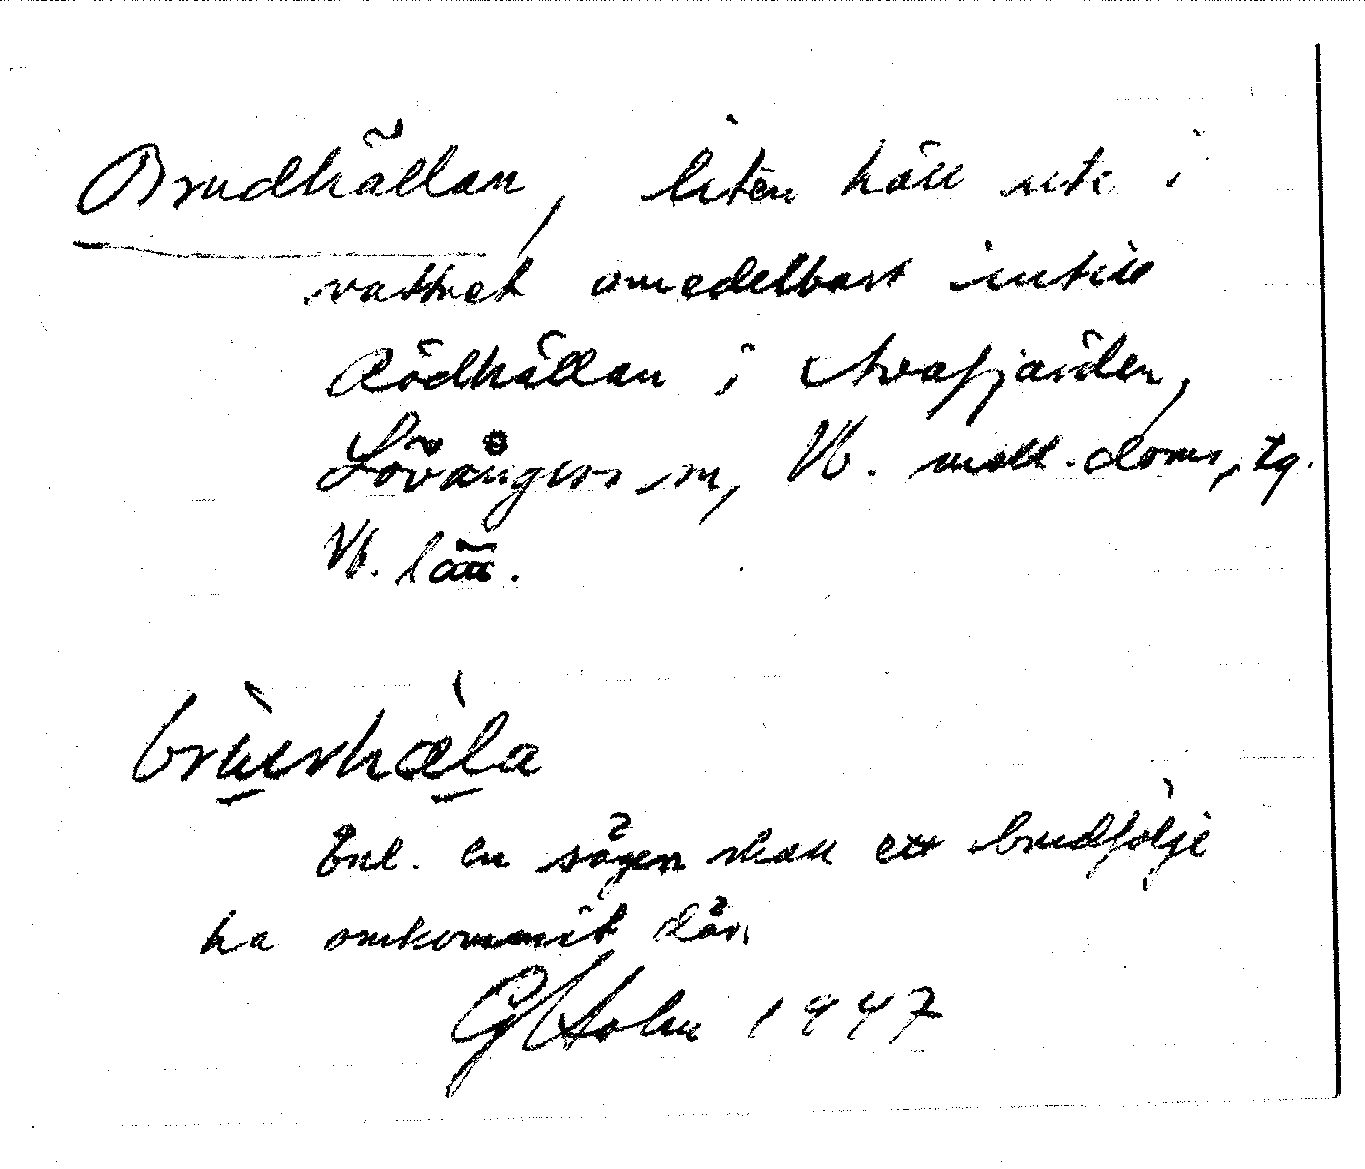 Brudhällan, liten häll ute i
vattnet omedelbart intill
Rödhällan i Avafjärden,
Lövångers sn, Vb. mell. doms. tg.
Vb. län.
brùerhæla
Enl. en sägen skall ett brudfölje
ha omkommit där.
G Holm 1947